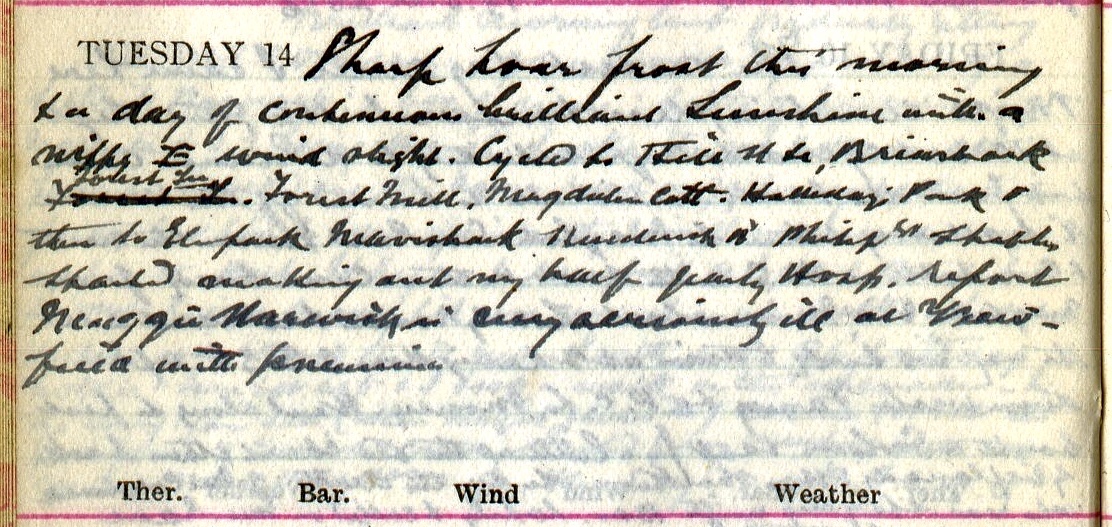 TUESDAY 14 Sharp hoar frost this morning
& a day of continuous brilliant Sunshine with a
nippy E wind slight. Cycled to Hill St
Forest
Forest Mill, Magdalen Cott. Halliday Park &
then to Elmpark Philip St Stables
Started making out my half yearly Hosp. report
Maggie is very seriously ill at
field with pneumonia
Ther. Bar. Wind Weather